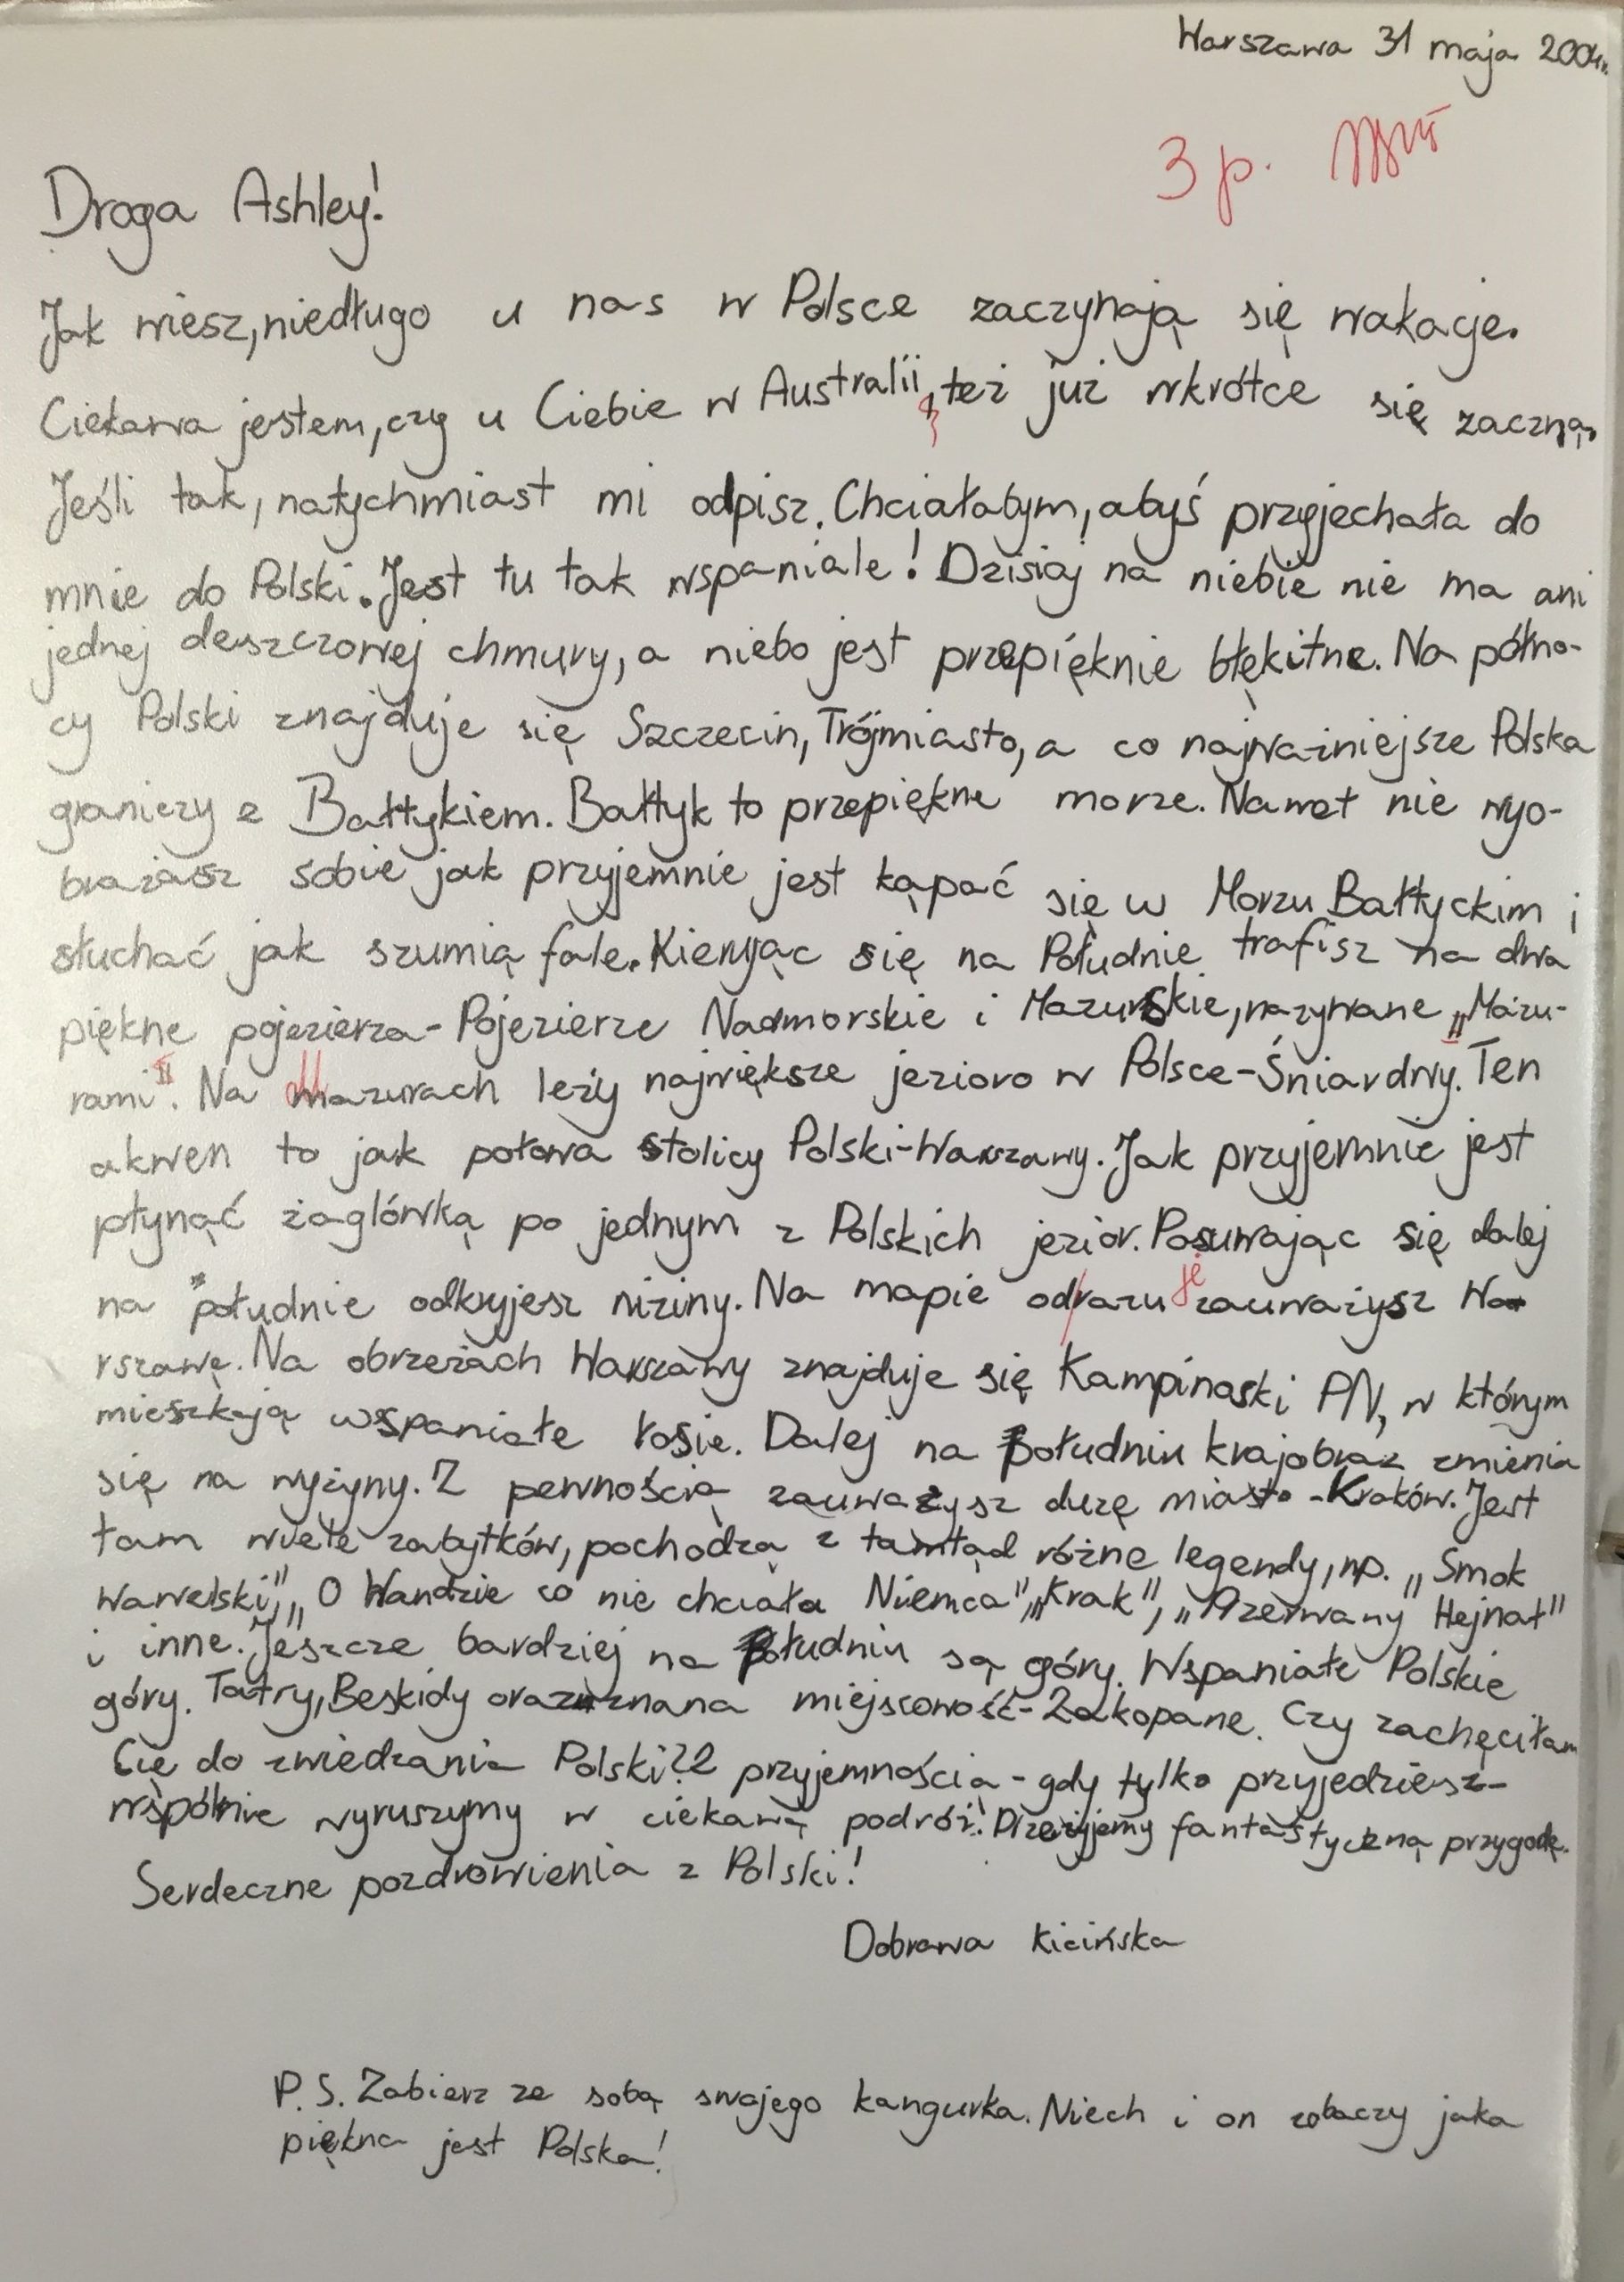 Warszawa 31 maja 2004r.
3 p.
Droga Ashley!
Jak wiesz, niedługo u nas w Polsce zaczynają się wakacje.
Ciekawa jestem, czy u Ciebie w Australii, też już wkrótce się zaczną.
Jeśli tak, natychmiast mi odpisz. Chciałabym, abyś przyjechała do
mnie do Polski. Jest tu tak wspaniale! Dzisiaj na niebie nie ma ani
jednej deszczowej chmury, a niebo jest przepięknie błękitne. Na półno-
cy Polski znajduje się Szczecin, Trójmiasto, a co najważniejsze Polska
graniczy z Bałtykiem. Bałtyk to przepiękne morze. Nawet nie wyo-
brażasz sobie jak przyjemnie jest kąpać się w Morzu Bałtyckim i
słuchać jak szumią fale. Kierując się na Południe trafisz na dwa
piękne pojezierza - Pojezierze Nadmorskie i Mazurskie, nazywane „Mazu-
rami". Na Mazurach leży największe jezioro w Polsce - Śniardwy. Ten
akwen to jak połowa stolicy Polski - Warszawy. Jak przyjemnie jest
płynąć żaglówką po jednym z Polskich jezior. Posuwając się dalej
na południe odkryjesz niziny. Na mapie od/razu je zauważysz Wa-
rszawę. Na obrzeżach Warszawy znajduje się Kampinoski PN, w którym
mieszkają wspaniałe łosie. Dalej na Południu krajobraz zmienia
się na wyżyny. Z pewnością zauważysz duzę miasto - Kraków. Jest
tam wiele zabytków, pochodzą z tamtąd różne legendy, np. „Smok
Wawelski", „O Wandzie co nie chciała Niemca", „Krak", „Przerwany Hejnał"
i inne. Jeszcze bardziej na Południu są góry. Wspaniałe Polskie
góry. Tatry, Beskidy oraz znana miejscowość - Zakopane. Czy zachęciłam
Cię do zwiedzania Polski? Z przyjemnością - gdy tylko przyjedziesz -
wspólnie wyruszymy w ciekawą podróż! Przeżyjemy fantastyczną przygodę.
Serdeczne pozdrowienia z Polski!
Dobrawa Kicińska
P.S. Zabierz ze sobą swojego kangurka. Niech i on zobaczy jaka
piękna jest Polska!